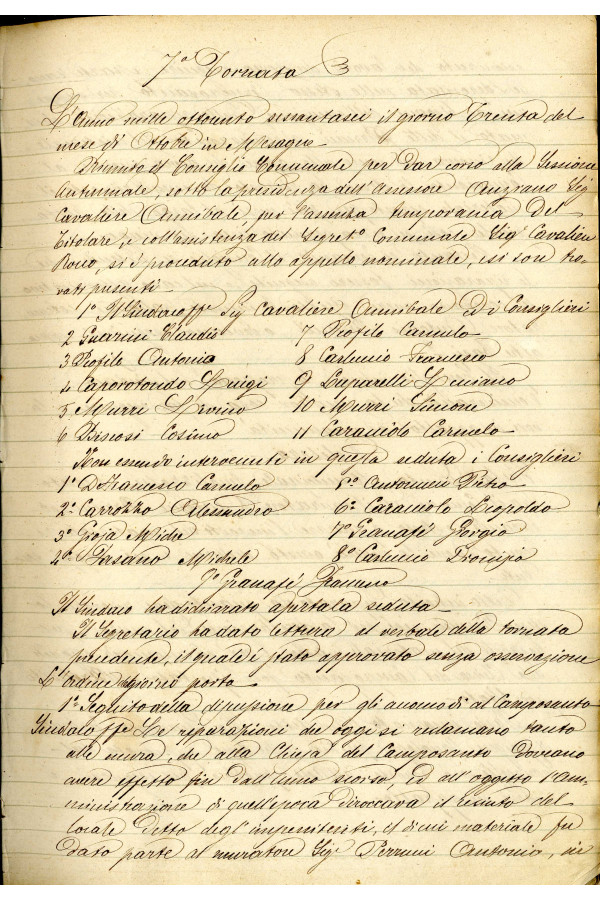 7ª Tornata
L'anno mille ottocento sessantasei il giorno Trenta del
mese di Ottobre in Mesagne
Riunito il Consiglio Comunale per dar corso alla Sessione
Autunnale, sotto la presidenza dell'Assessore Anziano Sigr
Cavaliere Annibale, per l'assenza temporanea del
Titolare, e coll'assistenza del Segreto Comunale Sigr Cavaliere
Rocco, si è proceduto allo appello nominale, ci si son tro-
vati presenti
1º Il Sindaco ff. Sigr Cavaliere Annibale Di Consiglieri
2 Guarini Claudio 7 Profilo Carmelo
3 Profilo Antonio 8 Carluccio Francesco
4 Caporotondo Luigi 9 Luparelli Luciano
5 Murri Livino 10 Murri Simone
6 Briscosi Cosimo 11 Caraviolo Carmelo
Non essendo intervenuti in questa seduta i Consiglieri
1º D'Francesco Carmelo 5º Antonucci Pietro
2º Carrozzo Alessandro 6º Caraviolo Leopoldo
3º Groja 7º Granafé Giorgio
4º Fasano Michele 8º Carluccio
9º Granafé
Il Sindaco ha dichiarato aperta la seduta
Il Segretario ha dato lettura al verbale della tornata
precedente, il quale è stato approvato senza osservazione
L'ordine del giorno porta
1º Seguito della discussione per gli accomodi al Camposanto
Sindaco ff. Le riparazioni che oggi si reclamano tanto
alle mura, che alla Chiesa del Camposanto doveano
avere effetto fin dall'anno scorso, ed all'oggetto l'am-
ministrazione di quell'epoca diroccava il recinto del
locale detto degl'impenitenti, il di cui materiale fu
dato parte al muratore Sigr Perrucci Antonio, in